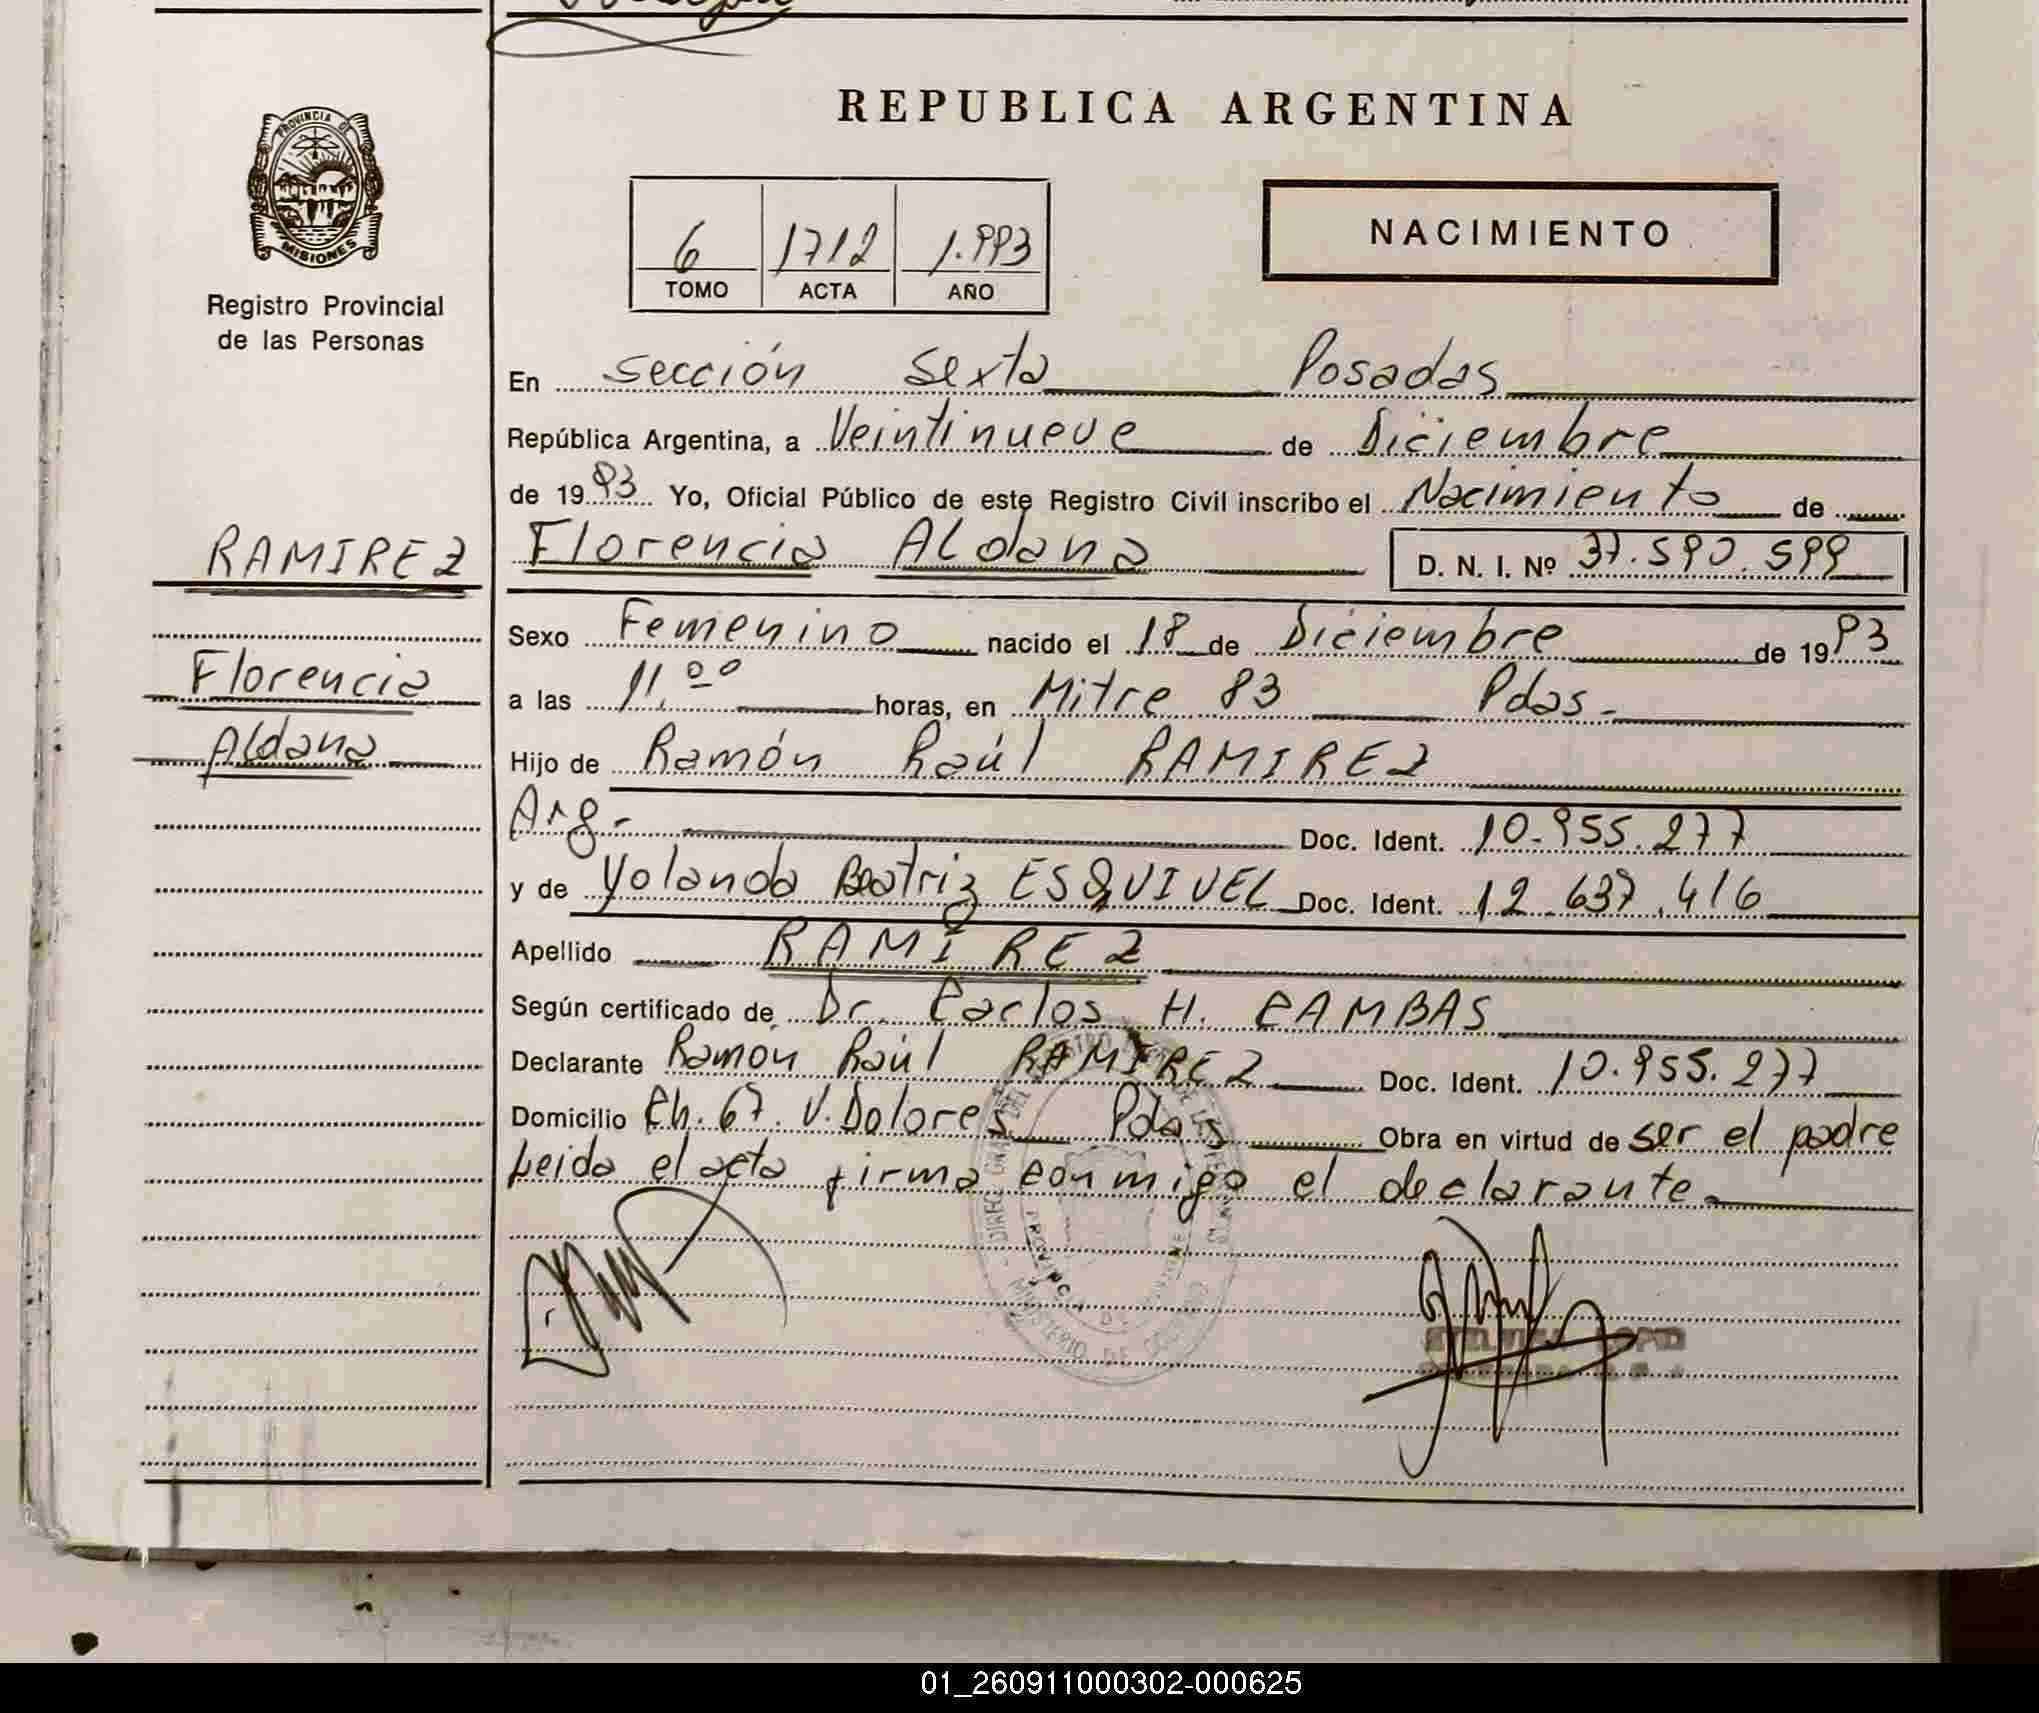 REPUBLICA ARGENTINA
PROVINCIA DE
MISIONES
Registro Provincial
de las Personas
6 1712 1.993
TOMO ACTA AÑO
NACIMIENTO
En sección Sexta Posadas
República Argentina, a Veintinueve de Diciembre
de 1993 Yo, Oficial Público de este Registro Civil inscribo el Nacimiento de
RAMIREZ
Florencia Aldana D. N. I. Nº 37.590.599
Sexo Femenino nacido el 18 de Diciembre de 1993
Florencia
a las 11.00 horas, en Mitre 83 Pdas.
Aldana
Hijo de Ramón Raúl RAMIREZ
Arg. Doc. Ident. 10.955.277
y de Yolanda Beatriz ESQUIVEL Doc. Ident. 12.637.416
Apellido RAMIREZ
Según certificado de Dr. Carlos H. CAMBAS
Declarante Ramón Raúl RAMIREZ Doc. Ident. 10.955.277
Domicilio Ch. 67. V. Dolores Pdas Obra en virtud de ser el padre
Leida el acta firma conmigo el declarante
PROVINCIA DE MISIONES
MINISTERIO DE GOBIERNO
01_260911000302-000625